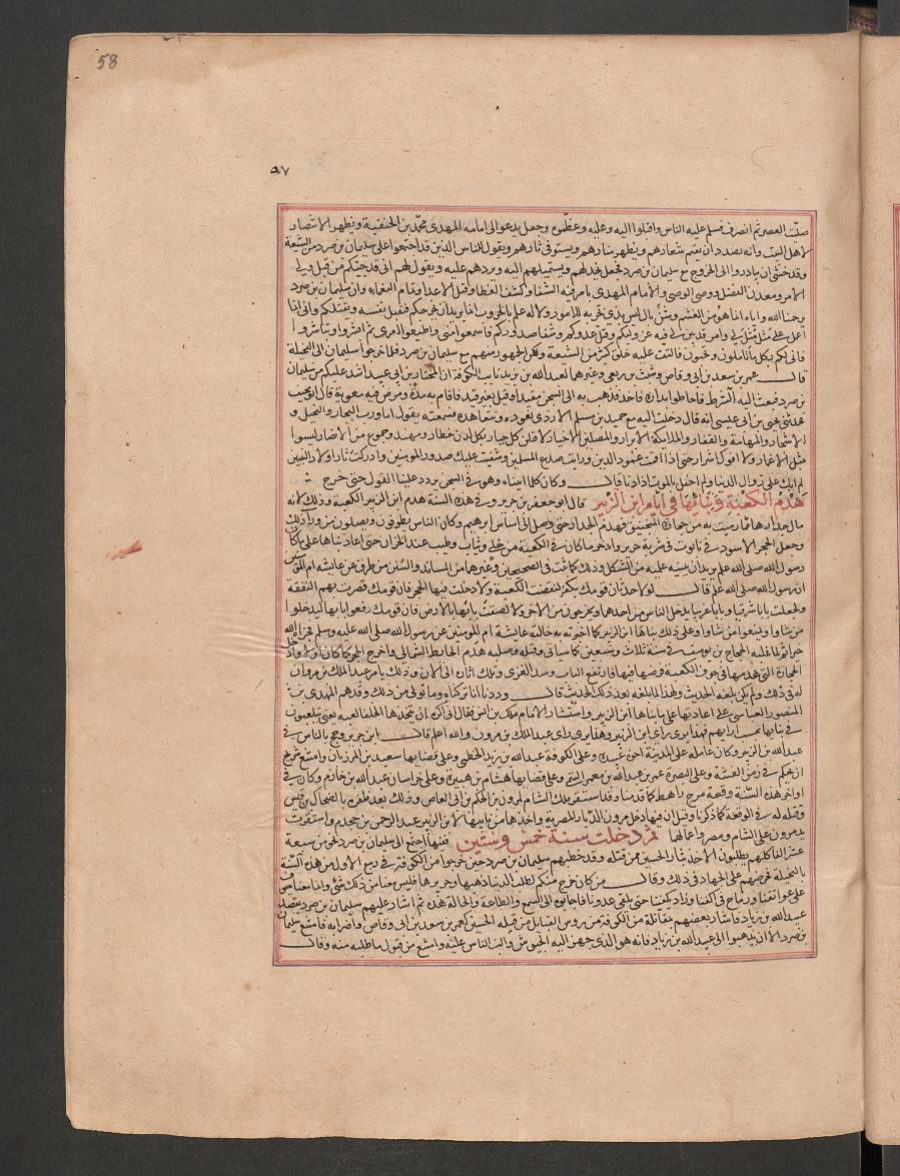 58
٥٧
صليت العصر ثم انصرف فسلم عليه الناس واقبلوا اليه وعليه وعظموه وجعل يدعو الى امامة المهدى محمد بن الحنفية ويظهر الانتصار
لاهل البيت وانه بصدد ان يقيم شعارهم ويظهر منارهم ويستوفى ثارهم ويقول للناس الذين قد اجتمعوا على سليمان بن صرد من الشيعة
وقد خشى ان يبادروا الى الخروج مع سليمان بن صرد فجعل يخذلهم ويستميلهم اليه ويردهم عليه ويقول لهم انى قد جئتكم من قبل ولى
الامر ومعدن الفضل ووصى الوصى والامام المهدى بامر فيه الشفا وكشف الغطا وقتل الاعدا وتمام النعما وان سليمان بن صرد
يرحمنا الله واياه انما هو من العشم وشن بال ليس بذى تجربه للامور ولا له علم بالحروب انما يريد ان يخرجكم فيقتل نفسه ويقتلكم وانى انما
اعمل على مثل مثل لى وامر قد بين لى فيه عز وليكم وقتل عدوكم وشفا صدوركم فاسمعوا منى واطيعوا امرى ثم ابشروا وتباشروا
فانى لكم بكل ما تاملون وتحبون فالتفت عليه خلق كثير من الشيعة ولكن الجمهور منهم مع سليمان بن صرد فلما خرجوا سليمان الى النخيلة
قال عمر بن سعد بن ابى وقاص وشبث بن ربعى وغيرهما لعبد الله بن يزيد نايب الكوفة ان المختار بن ابى عبيد اشد عليكم من سليمان
بن صرد فبعث اليه الشرط فاحاطوا بداره فاخذ فذهب به الى السجن مقيدا وقيل بغير قيد فاقام به مدة ومرض فيه قال ابو مخنف
فحدثنى يحيى بن ابى عيسى انه قال دخلت اليه مع حميد بن مسلم الازدى نعوده ونتعاهده فسمعته يقول اما ورب البحار والنخيل و
الاشجار والمهامه والقفار والملائكة الابرار والمصطفين الاخيار لاقتلن كل جبار بكل لدن خطار ومهند وجموع من الانصار ليسوا
بمثل الاغمار ولا اشرار حتى اذا اقمت عمود الدين ورايت صدع المسلمين وشفيت غليل صدور المومنين وادركت ثار اولاد النبيين
لم ابك على زوال الدنيا ولم احفل بالموت اذا دنا قال وكان كلما اتيناه وهو فى السجن يردد علينا القول حتى خرج
هدم الكعبة وبنائها فى ايام ابن الزبير قال ابو جعفر بن جرير وفى هذه السنة هدم ابن الزبير الكعبة وذلك لانه
مال جدارها مما رميت به من حجارة المنجنيق فهدم الجدار حتى وصل الى اساس ابراهيم وكان الناس يطوفون ويصلون من ورا ذلك
وجعل الحجر الاسود فى تابوت فى سرقة حرير وادخر ما كان فى الكعبة من حلى وثياب وطيب عند الخزان حتى اعاد بناها على ما كان
رسول الله صلى الله عليه يريد ان يبنيه عليه من الشكل وذلك كما ثبت فى الصحيحين وغيرهما من المسانيد والسنن من طرق عن عايشة ام المومنين
ان رسول الله صلى الله عليه قال لولا حدثان قومك بكفر لنقضت الكعبة ولادخلت فيها الحجر فان قومك قصرت بهم النفقة
ولجعلت لها بابا شرقيا وبابا غربيا يدخل الناس من احدهما ويخرجون من الاخر ولالصقت بابها بالارض فان قومك رفعوا بابها ليدخلوا
من شاوا ويمنعوا من شاوا وعلى ذلك بناها ابن الزبير كما اخبرته به خالته عايشة ام المومنين عن رسول الله صلى الله عليه وسلم فجزاه الله
خيرا ثم لما غلبه الحجاج بن يوسف فى سنة ثلاث وسبعين كما سياتى وقتله وصلبه هدم الحايط الشمالى واخرج الحجر كما كان اولا وادخل
الحجارة التى هدمها فى جوف الكعبة فرضها فيها فارتفع الباب وسد الغربى وتلك اثاره الى الان وذلك بامر عبد الملك بن مروان
له فى ذلك ولم يكن بلغه الحديث ولهذا لما بلغه بعد ذلك الحديث قال وددنا انا تركناه وما تولى من ذلك وقد هم المهدى بن
المنصور العباسى على اعادتها على ما بناها ابن الزبير واستشار الامام ملك بن انس فقال انى اكره ان يتخذها الخلفا لعبة يعنى يتلعبون
فى بنائها بحسب ارايهم فهذا يرى راى ابن الزبير وهذا يرى راى عبد الملك بن مروان والله اعلم قال ابن جرير وحج بالناس فى
عبد الله بن الزبير وكان عامله على المدينة اخوه عبيدة وعلى الكوفة عبد الله بن يزيد الخطمى وعلى قضايها سعيد بن المرزبان وامتنع شريح
ان يحكم فى زمن الفتنة وعلى البصرة عمر بن عبد الله بن معمر التيمى وعلى قضايها هشام بن هبيرة وعلى خراسان عبد الله بن خازم وكان فى
اواخر هذه السنة وقعة مرج راهط كما قدمنا وقد استقر ملك الشام لمروان بن الحكم بن ابى العاص وذلك بعد ظفره بالضحاك بن قيس
وقتله له فى الوقعة كما ذكرنا وقيل ان فيها دخل مروان الديار المصرية واخذها من نايبها لابن الزبير عبد الرحمن بن جحدم واستقرت
يد مروان على الشام ومصر واعمالها ثم دخلت سنة خمس وستين ففيها اجتمع الى سليمان بن صرد نحو من سبعة
عشر الفا كلهم يطلبون الاخذ بثار الحسين ممن قتله وقد خطبهم سليمان بن صرد حين خرجوا من الكوفة فى ربيع الاول من هذه السنة
بالنخيلة فحرضهم على الجهاد فى ذلك وقال من كان خرج منكم لطلب الدنيا ذهبها وحريرها فليس معنا من ذلك شئ وانما معنا سيوف
على عواتقنا ورماح فى اكفنا وزاد يكفينا حتى نلقى عدونا فاجابوه الى السمع والطاعة والحالة هذه ثم اشار عليهم سليمان بن صرد بقصد
عبيد الله بن زياد فاشار بعضهم بمقاتلة من الكوفة من روس القبايل من قتلة الحسين كعمر بن سعد بن ابى وقاص واضرابه فامتنع سليمان
بن صرد الا ان يذهبوا الى عبيد الله بن زياد فانه هو الذى جهز اليه الجيوش والب الناس عليه وامتنع من قبول ما طلبه منه وقال